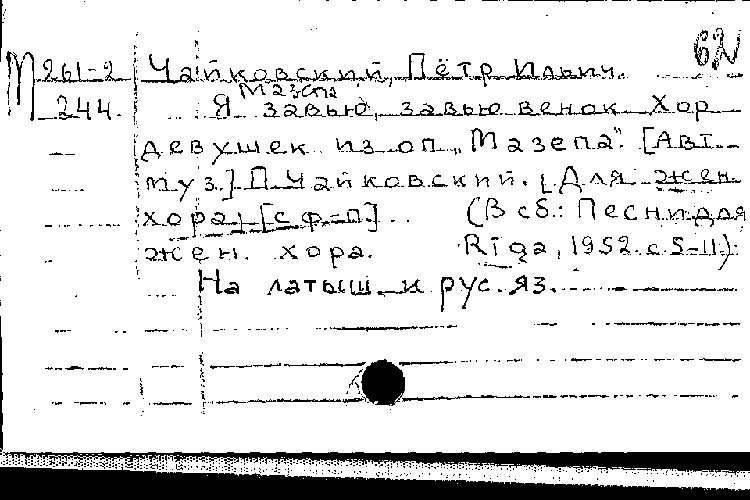 62
М 261-2 Чайковский, Пётр Ильич.
Мазепа
244. Я завью, завью венок Хор
девушек из оп. „Мазепа". [Авт.
муз.] П. Чайковский. [Для жен.
хора] [с ф=п.] .. (В сб.: Песни для
жен. хора. Rīga, 1952. с. 5-11.)
На латыш. и рус. яз.